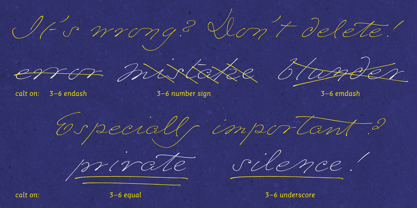 It's wrong? Don't delete!
error mistake blunder
calt on: 3–6 endash 3–6 number sign 3–6 emdash
Especially important?
private silence!
calt on: 3–6 equal 3–6 underscore